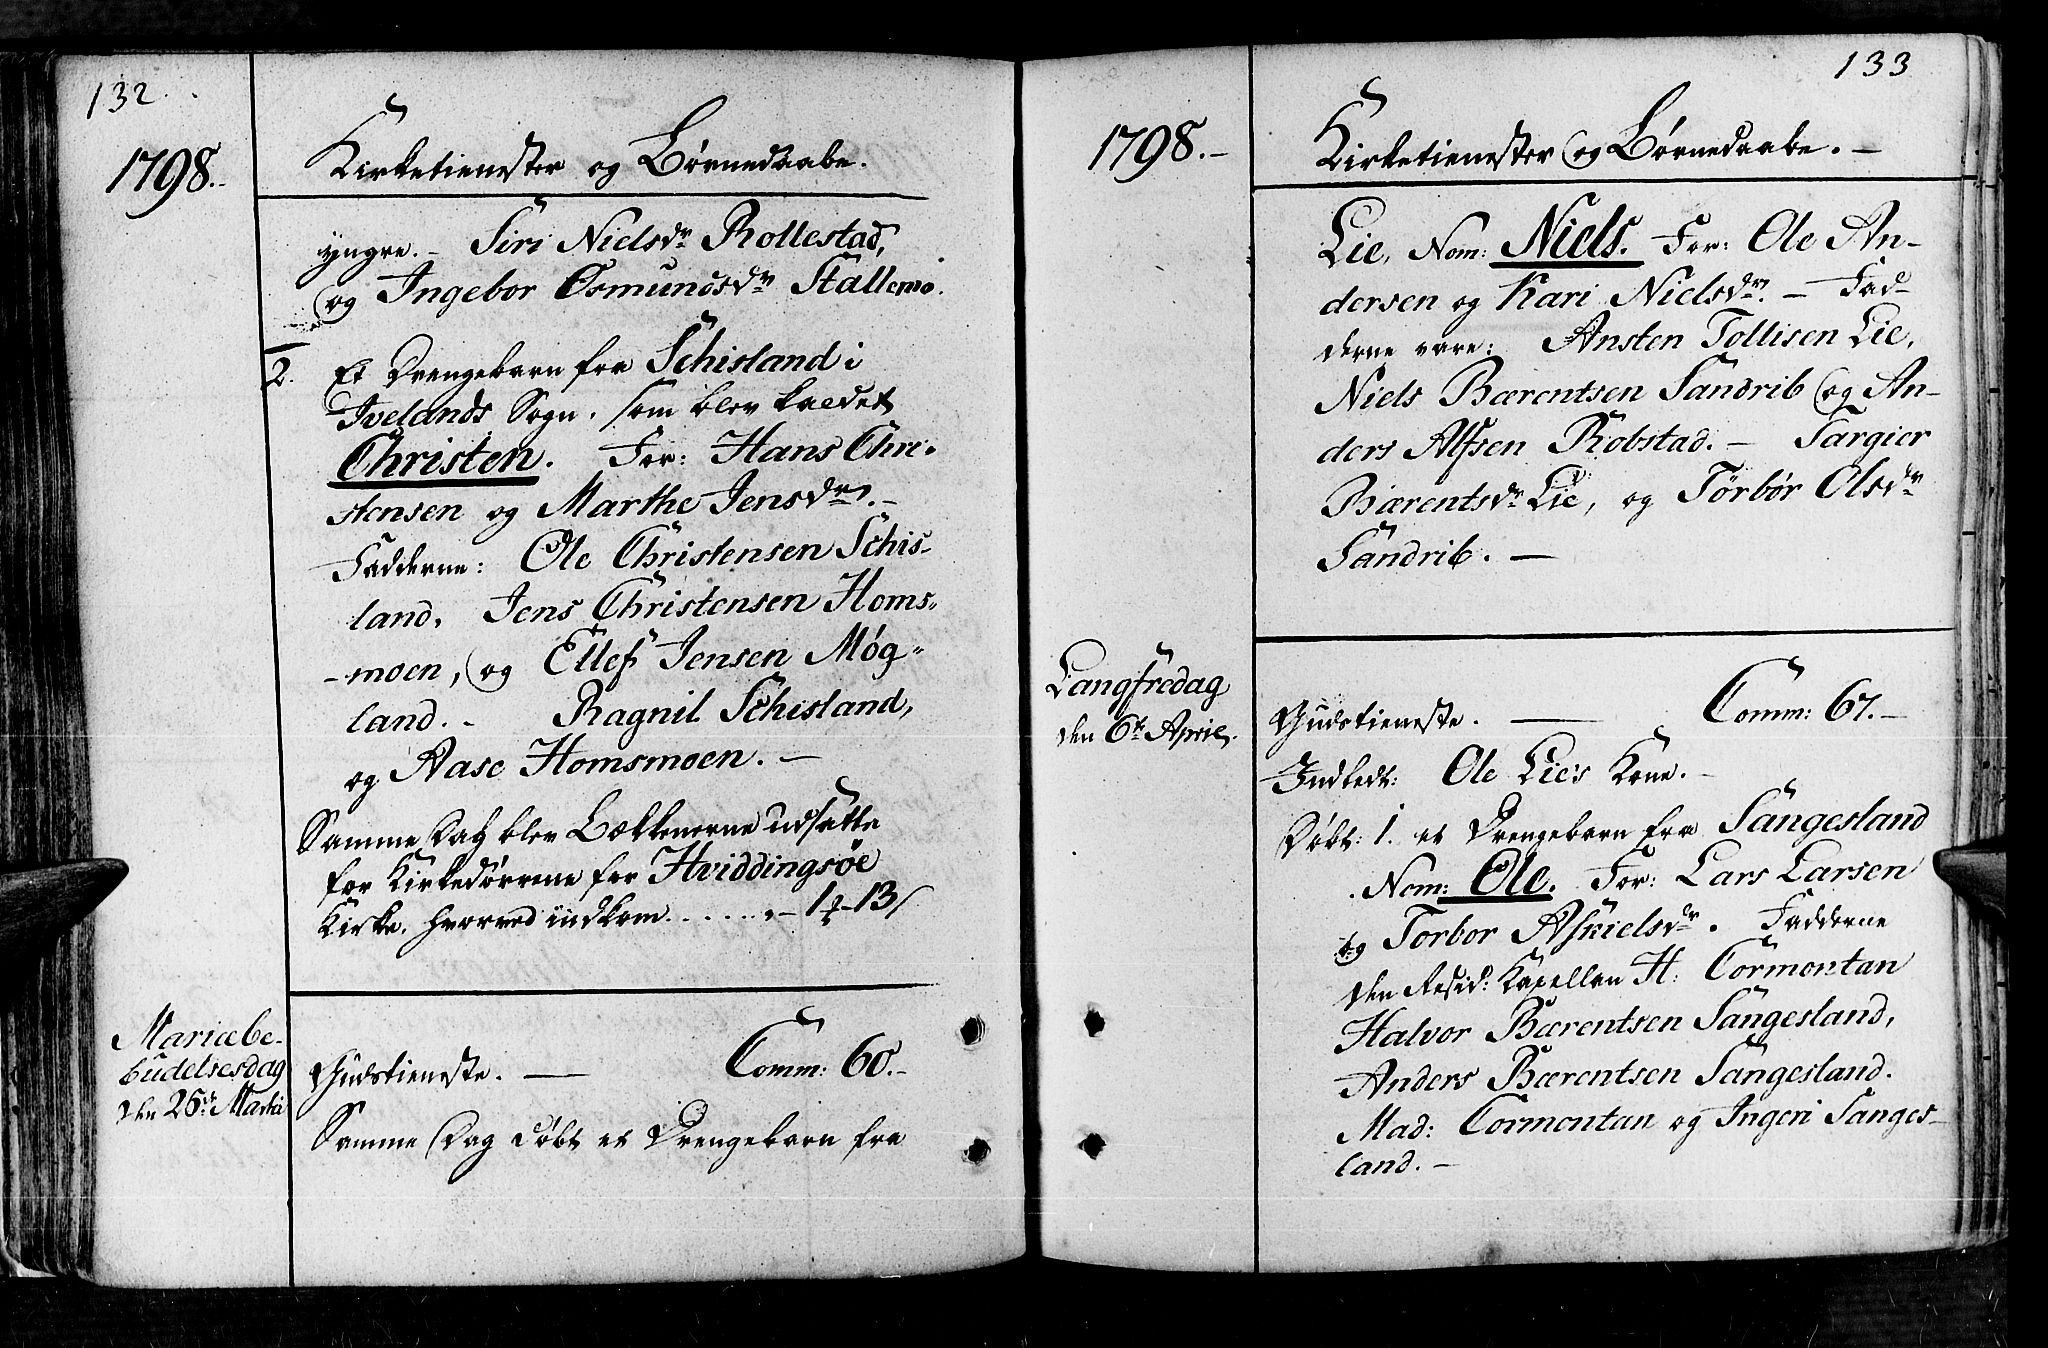 132
1798.-
Kirketienester og Børnedaabe.
yngre. - Siri Nielsdr Rollestad,
og Ingebor Osmundsdr Stallemo.
2. Et Drengebarn fra Schisland i
Ivelands Sogn, som blev kaldet
Christen. For: Hans Chri-
stensen og Marthe Jensdr. -
Fadderne: Ole Christensen Schis-
land, Jens Christensen Homs-
-moen, og Ellef Jensen Møg-
land. - Ragnil Schisland,
og Aase Homsmoen. -
Samme Dag blev Bækkenerne udsatte
for Kirkedørrene for Hviddingsøe
Kirke, hvorved indkom ...... - 1 - 13 /
Mariæbe-
budelsesdag
den 25de Martii
Gudstieneste. - Comm: 60. -
Samme Dag døbt et Drengebarn fra
133
1798. -
Kirketienester og Børnedaabe. -
Lie, Nom: Niels. For: Ole An-
dersen og Kari Nielsdr. - Fad-
derne vare: Ansten Tollisen Lie,
Niels Bærentsen Sandrib og An-
ders Alfsen Robstad. - Targier
Bærentsdr Lie, og Tørbør Olsdr
Sandrib. -
Langfredag
den 6te April.
Gudstieneste. - Comm: 67. -
Indledt: Ole Lie's Kone. -
Døbt: 1. et Drengebarn fra Sangesland
Nom: Ole. For: Lars Larsen
og Torbor Asnielsdr. Fadderne
den Resid: Kapellan H: Cormontan
Halvor Bærentsen Sangesland,
Anders Bærentsen Sangesland.
Mad: Cormontan og Ingeri Sanges-
land. -